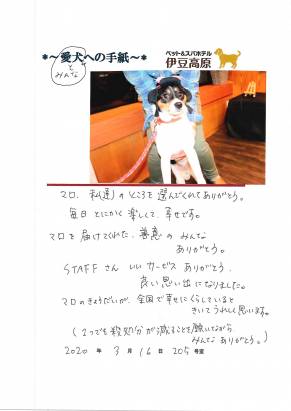 *～愛犬への手紙～*
とみんな
ペット&スパホテル
伊豆高原
マロ、私達のところを選んでくれてありがとう。
毎日とにかく楽しくて、幸せです。
マロを届けてくれた、善意のみんな
ありがとう。
STAFFさん いいサービス ありがとう、
良い思い出になりました。
マロのきょうだいが、全国で幸せにくらしていると
きいてうれしく思います。
(1つでも殺処分が減ることを願いながら
みんなありがとう。)
2020 年 3 月 16 日 205 号室